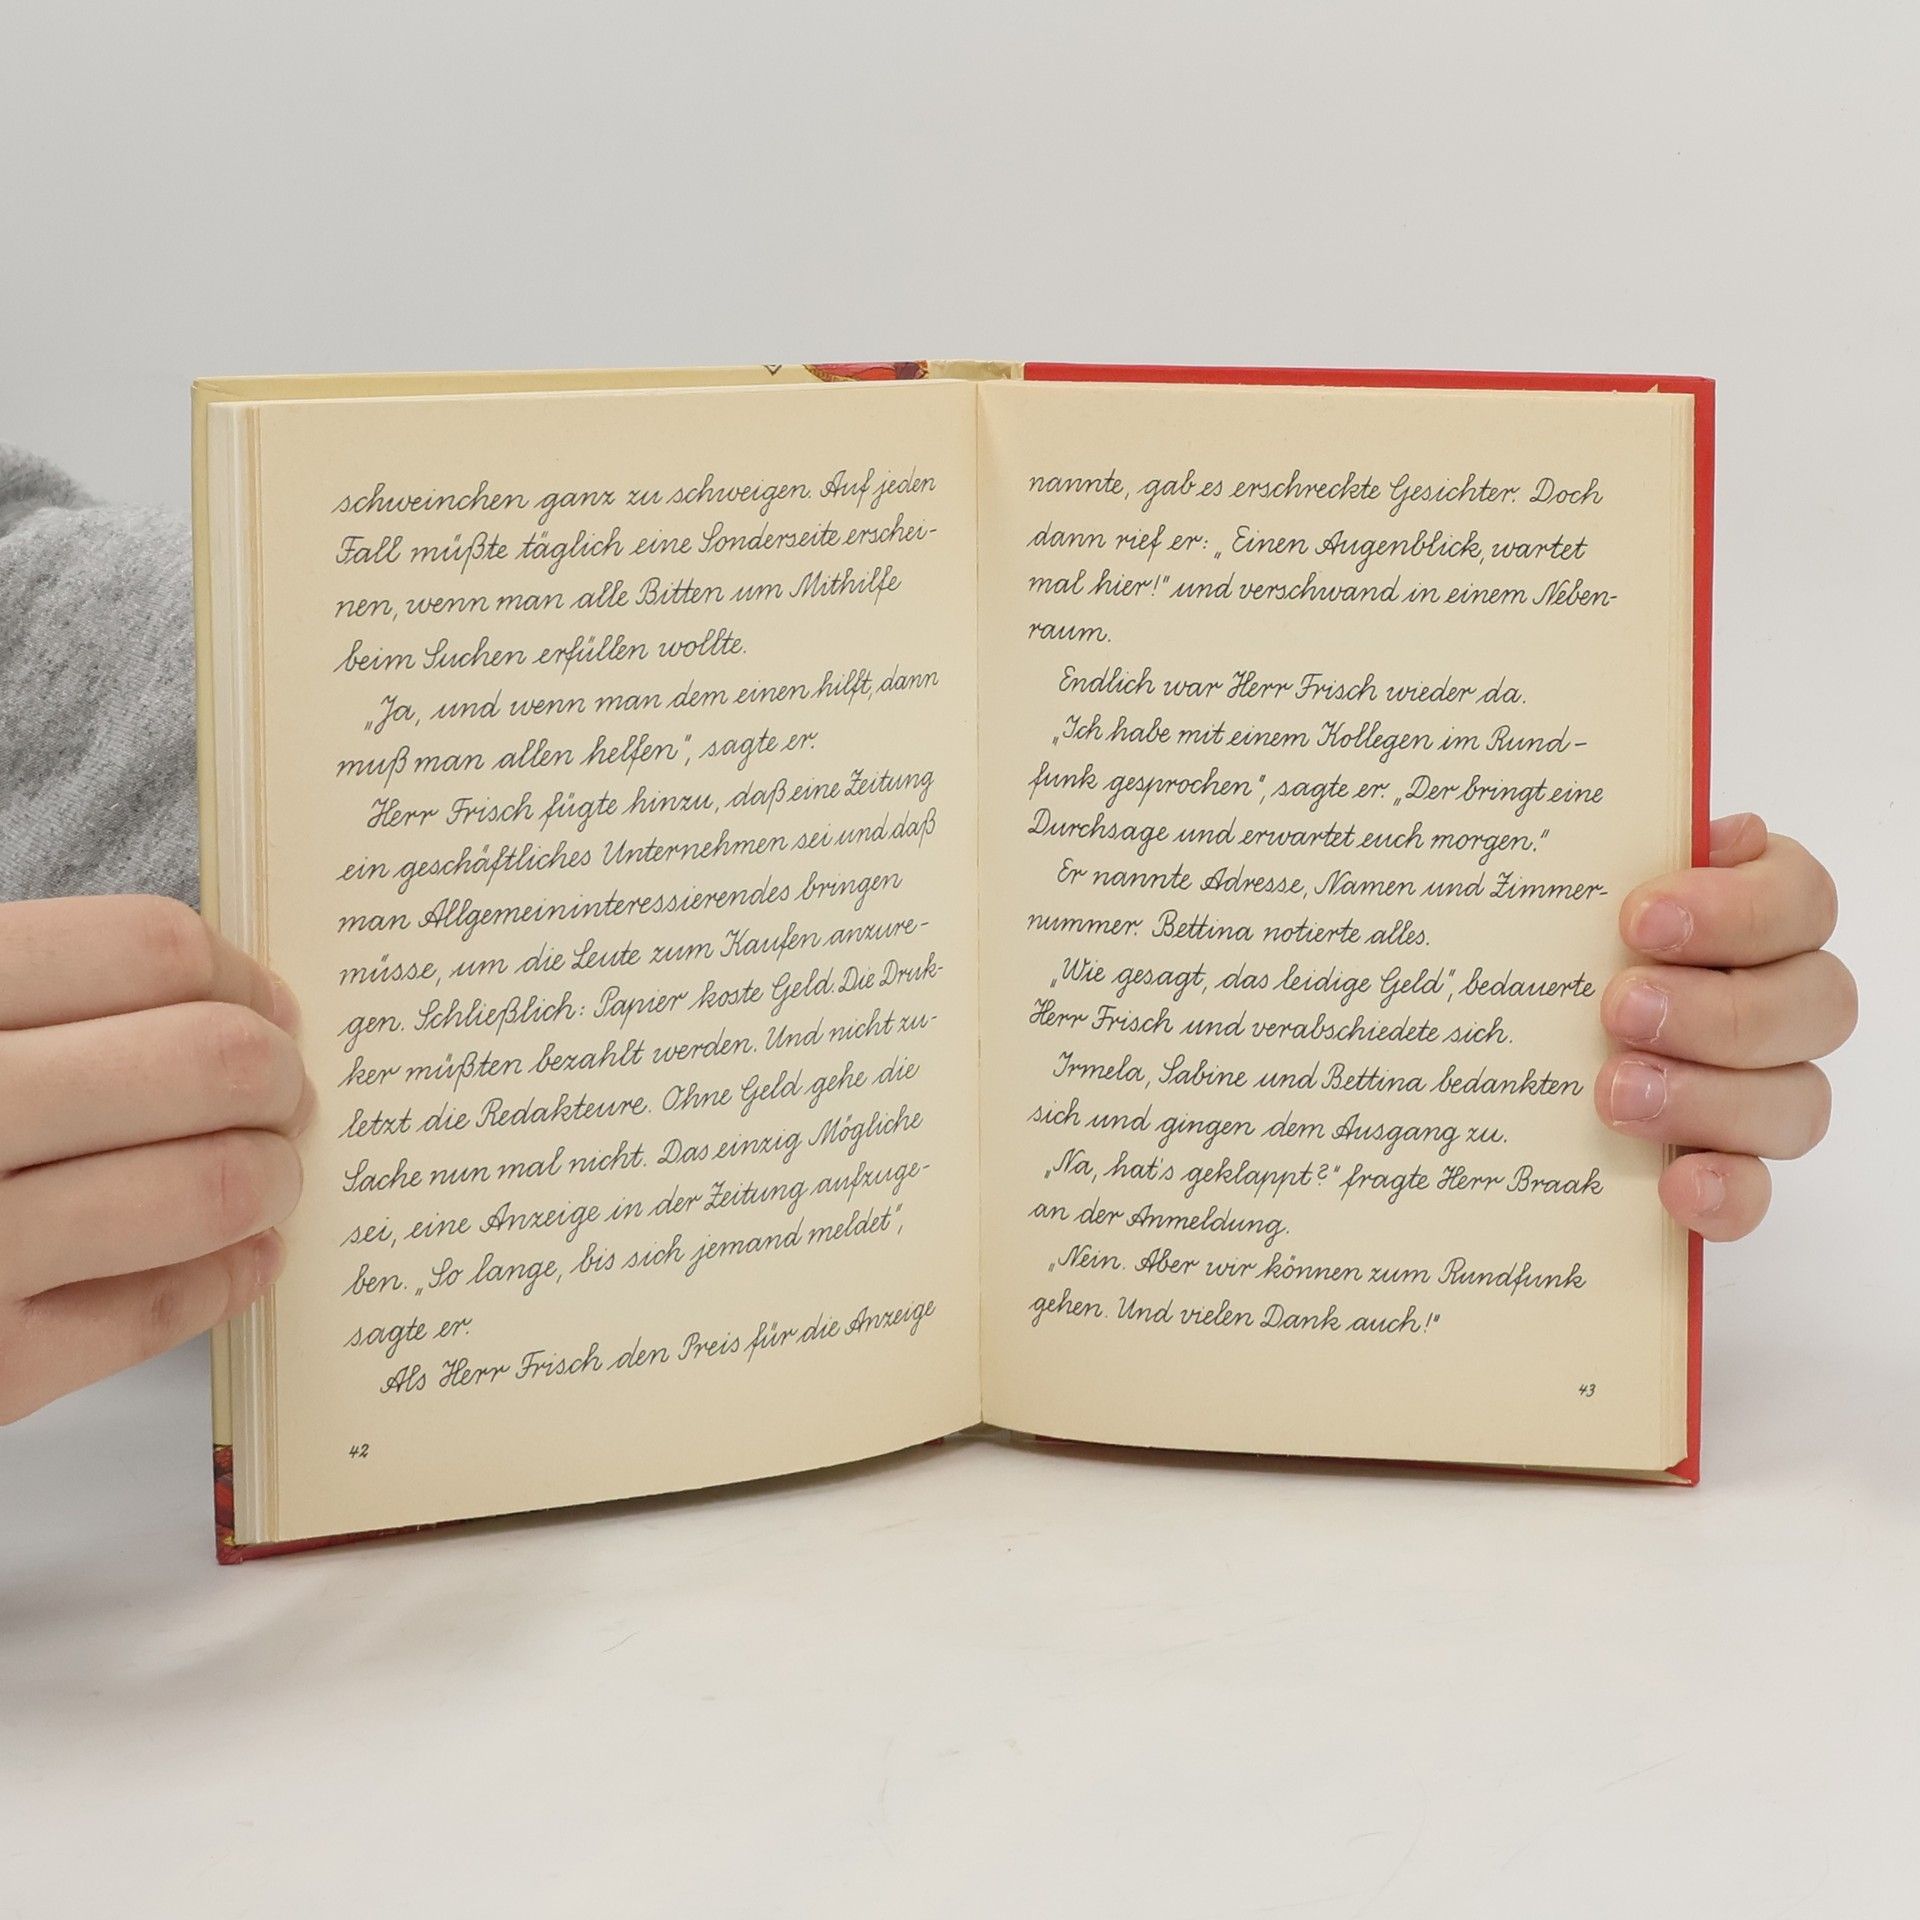 schweinchen ganz zu schweigen. Auf jeden
Fall müßte täglich eine Sonderseite erschei-
nen, wenn man alle Bitten um Mithilfe
beim Suchen erfüllen wollte.
„Ja, und wenn man dem einen hilft, dann
muß man allen helfen", sagte er.
Herr Frisch fügte hinzu, daß eine Zeitung
ein geschäftliches Unternehmen sei und daß
man Allgemeininteressierendes bringen
müsse, um die Leute zum Kaufen anzure-
gen. Schließlich: Papier koste Geld. Die Druk-
ker müßten bezahlt werden. Und nicht zu-
letzt die Redakteure. Ohne Geld gehe die
Sache nun mal nicht. Das einzig Mögliche
sei, eine Anzeige in der Zeitung aufzuge-
ben. „So lange, bis sich jemand meldet",
sagte er.
Als Herr Frisch den Preis für die Anzeige
42
nannte, gab es erschreckte Gesichter. Doch
dann rief er: „Einen Augenblick, wartet
mal hier!" und verschwand in einem Neben-
raum.
Endlich war Herr Frisch wieder da.
„Ich habe mit einem Kollegen im Rund-
funk gesprochen", sagte er. „Der bringt eine
Durchsage und erwartet euch morgen."
Er nannte Adresse, Namen und Zimmer-
nummer. Bettina notierte alles.
„Wie gesagt, das leidige Geld", bedauerte
Herr Frisch und verabschiedete sich.
Irmela, Sabine und Bettina bedankten
sich und gingen dem Ausgang zu.
„Na, hat's geklappt?" fragte Herr Braak
an der Anmeldung.
„Nein. Aber wir können zum Rundfunk
gehen. Und vielen Dank auch!"
43